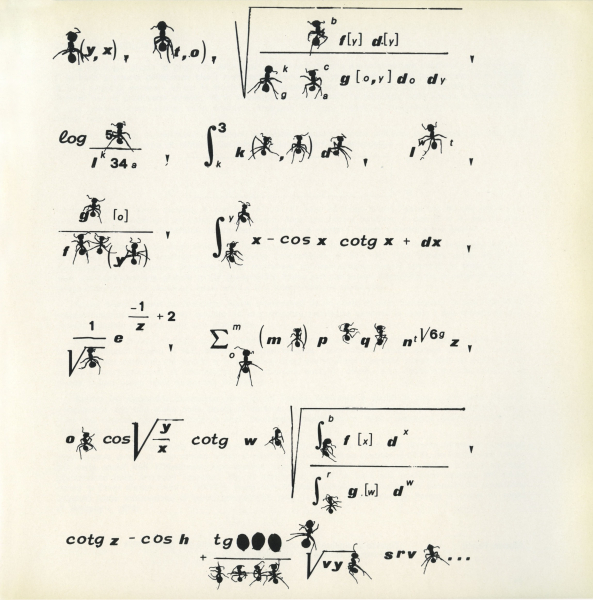 (y, x) , (t, o) , √ b f [y] d [y] / k g c a g [o, y] do dy ,
log 5 / l k 34 a , ∫ 3 k k ( , ) d , l w t ,
g [o] / f (y ) , ∫ y x - cos x cotg x + dx ,
1 / √ e -1 / z + 2 , Σ m o (m ) p q n t √6g z ,
o cos √ y / x cotg w √ ∫ b f [x] d x / ∫ r g [w] d w ,
cotg z - cos h + tg / √vy srv ...